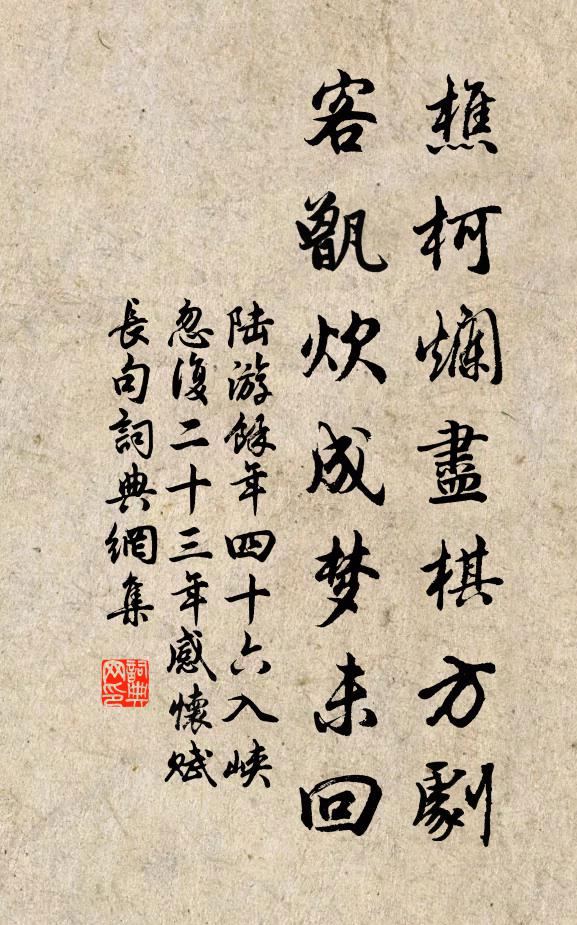 樵柯爛盡棋方劇
客甑炊成梦未回
陆游餘年四十六入峡
忽復二十三年感懷赋
長句詞典網集
詞典网印